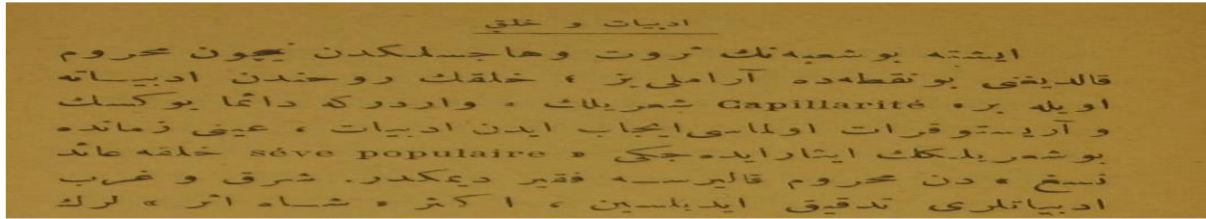 ادبیات و خلق
ایشته بو شعبه نك ثروت وهاجسلیكدن نیچون محروم
قالدیغنی بو نقطه ده آراملی یز ؛ خلقك روحندن ادبیاته
اویله بر « Capillarité شعر یلك » واردر كه دائما یوكسك
و آریستوقرات اولماسی ایجاب ایدن ادبیات ، عینی زمانده
بو شعر یلكك ایثار ایده جكی « séve populaire خلقه عائد
نسغ » دن محروم قالیرسه فقیر دیمكدر. شرق و غرب
ادبیاتلری تدقیق ایدیلسین ، اكثر « شاه اثر » لرك